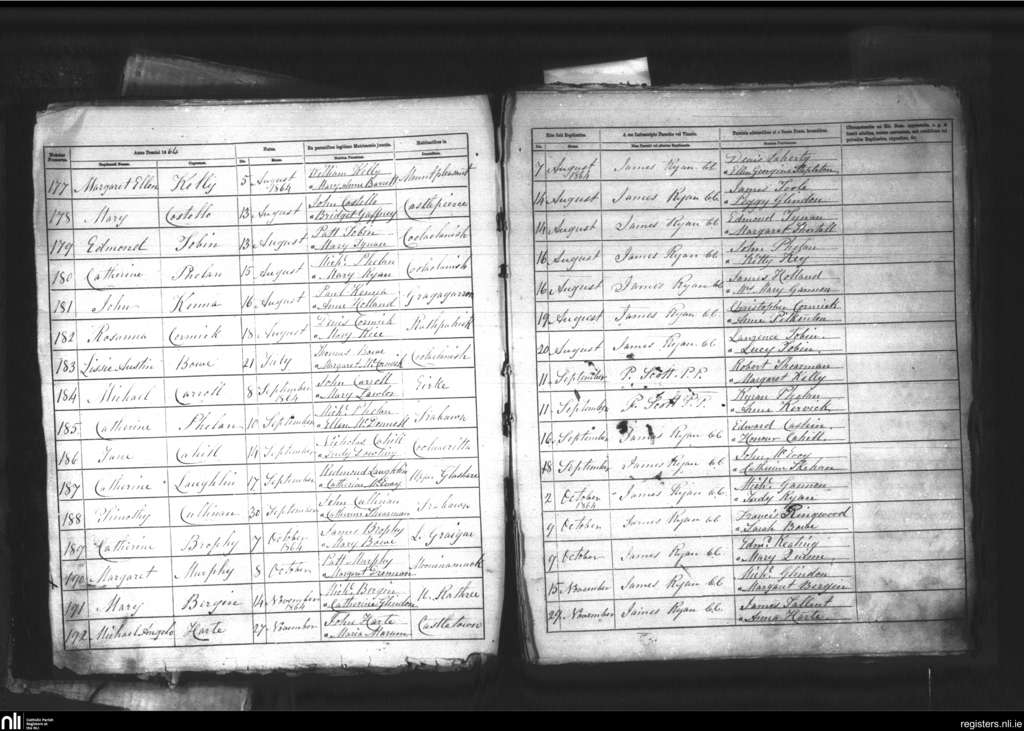 Anno Domini 1864
Natus
Ex parentibus legitimo Matrimonio junctis.
Habitantibus in
Baptizati Nomen.
Cognomen.
Die.
Mense.
177 Margaret Ellen Kelly 5 August 1864 William Kelly Mountpleasant
" Mary Anne Barrett
178 Mary Costello 13 August John Costello Castlepierce
" Bridget Gaffney
179 Edmond Tobin 13 August Patt Tobin Coolaclamish
" Mary
180 Catherine Phelan 15 August Michl. Phelan Coolaclamish
" Mary Ryan
181 John Kenna 16 August Paul Kenna Gragagarron
" Anne Holland
182 Rosanna Cormick 18 August Denis Cormick Rathpatrick
" Mary Rice
183 Lissie Austin Bowe 21 July Thomas Bowe Coolaclamish
" Margaret McCormick
184 Michael Carroll 8 September 1864 John Carroll Eirke
" Mary Lawlor
185 Catherine Phelan 10 September Michl. Phelan Grabawn
" Ellen McDonnell
186 Jane Cahill 14 September Nicholas Cahill
" Emily Dowling
187 Catherine Laughlin 17 September Richmond Laughlin Glashare
" Catherine McEvoy
188 Timothy Cullinan 30 September John Cullinan Grabawn
" Catherine Shearman
189 Catherine Brophy 7 October 1864 James Brophy L. Graigue
" Mary Bowe
190 Margaret Murphy 8 October Patt Murphy Moinanamuck
" Margaret Brennan
191 Mary Bergin 14 November 1864 Michl. Bergin N. Rathree
" Catherine Glendon
192 Michael Angelo Harte 27 November John Harte Castletown
" Maria
Die. Mense.
7 August 1864 James Ryan CC Denis Doherty
" Ellen Georgina Stapleton
14 August James Ryan CC James Toole
" Peggy Glendon
14 August James Ryan CC Edmond Tynan
" Margaret Thortall
16 August James Ryan CC John Phelan
" Kitty Hey
16 August James Ryan CC James Holland
" Mrs Mary Gannon
19 August James Ryan CC Christopher Cormick
" Anne
20 August James Ryan CC Laurence Tobin
" Lucy Tobin
11 September P. Scott P.P. Robert Shearman
" Margaret Kelly
11 September P. Scott P.P. Kyran Phelan
" Anne Kerwick
16 September James Ryan CC Edward
" Honour Cahill
18 September James Ryan CC John McEvoy
" Catherine Phelan
2 October 1864 James Ryan CC Michl. Gannon
" Judy Ryan
9 October James Ryan CC Francis Ringwood
" Sarah Bowe
9 October James Ryan CC Edmd. Keating
" Mary
15 November James Ryan CC Michl. Glendon
" Margaret Bergin
29 November James Ryan CC James Tallent
" Anna Harte
nli
Catholic Parish
Registers at
the NLI
registers.nli.ie